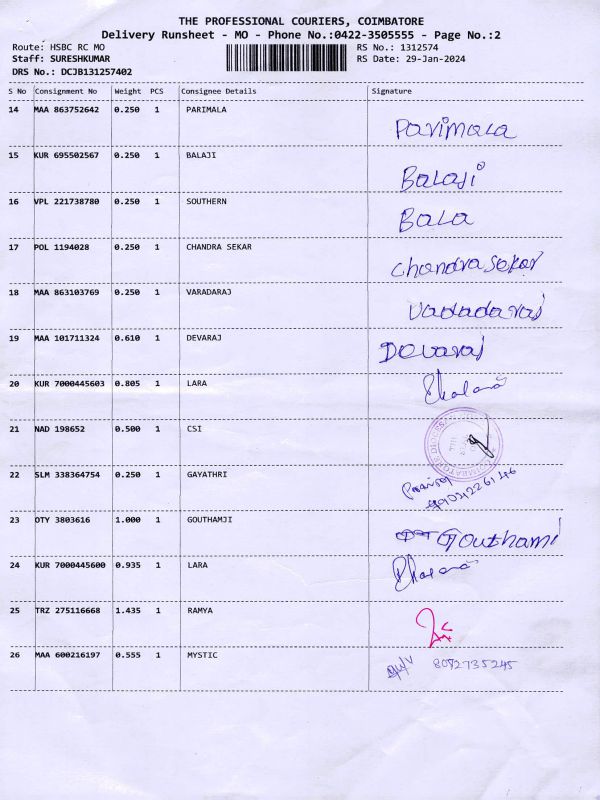 THE PROFESSIONAL COURIERS, COIMBATORE
Delivery Runsheet - MO - Phone No.:0422-3505555 - Page No.:2
Route: HSBC RC MO RS No.: 1312574
Staff: SURESHKUMAR RS Date: 29-Jan-2024
DRS No.: DCJB131257402
S No Consignment No Weight PCS Consignee Details Signature
14 MAA 863752642 0.250 1 PARIMALA
Parimala
15 KUR 695502567 0.250 1 BALAJI
Balaji
16 VPL 221738780 0.250 1 SOUTHERN
Bala
17 POL 1194028 0.250 1 CHANDRA SEKAR
Chandra Sekar
18 MAA 863103769 0.250 1 VARADARAJ
Vadadaraj
19 MAA 101711324 0.610 1 DEVARAJ
Devaraj
20 KUR 7000445603 0.805 1 LARA
21 NAD 198652 0.500 1 CSI
22 SLM 338364754 0.250 1 GAYATHRI
23 OTY 3803616 1.000 1 GOUTHAMJI
Gouthami
24 KUR 7000445600 0.935 1 LARA
25 TRZ 275116668 1.435 1 RAMYA
26 MAA 600216197 0.555 1 MYSTIC
8072735245